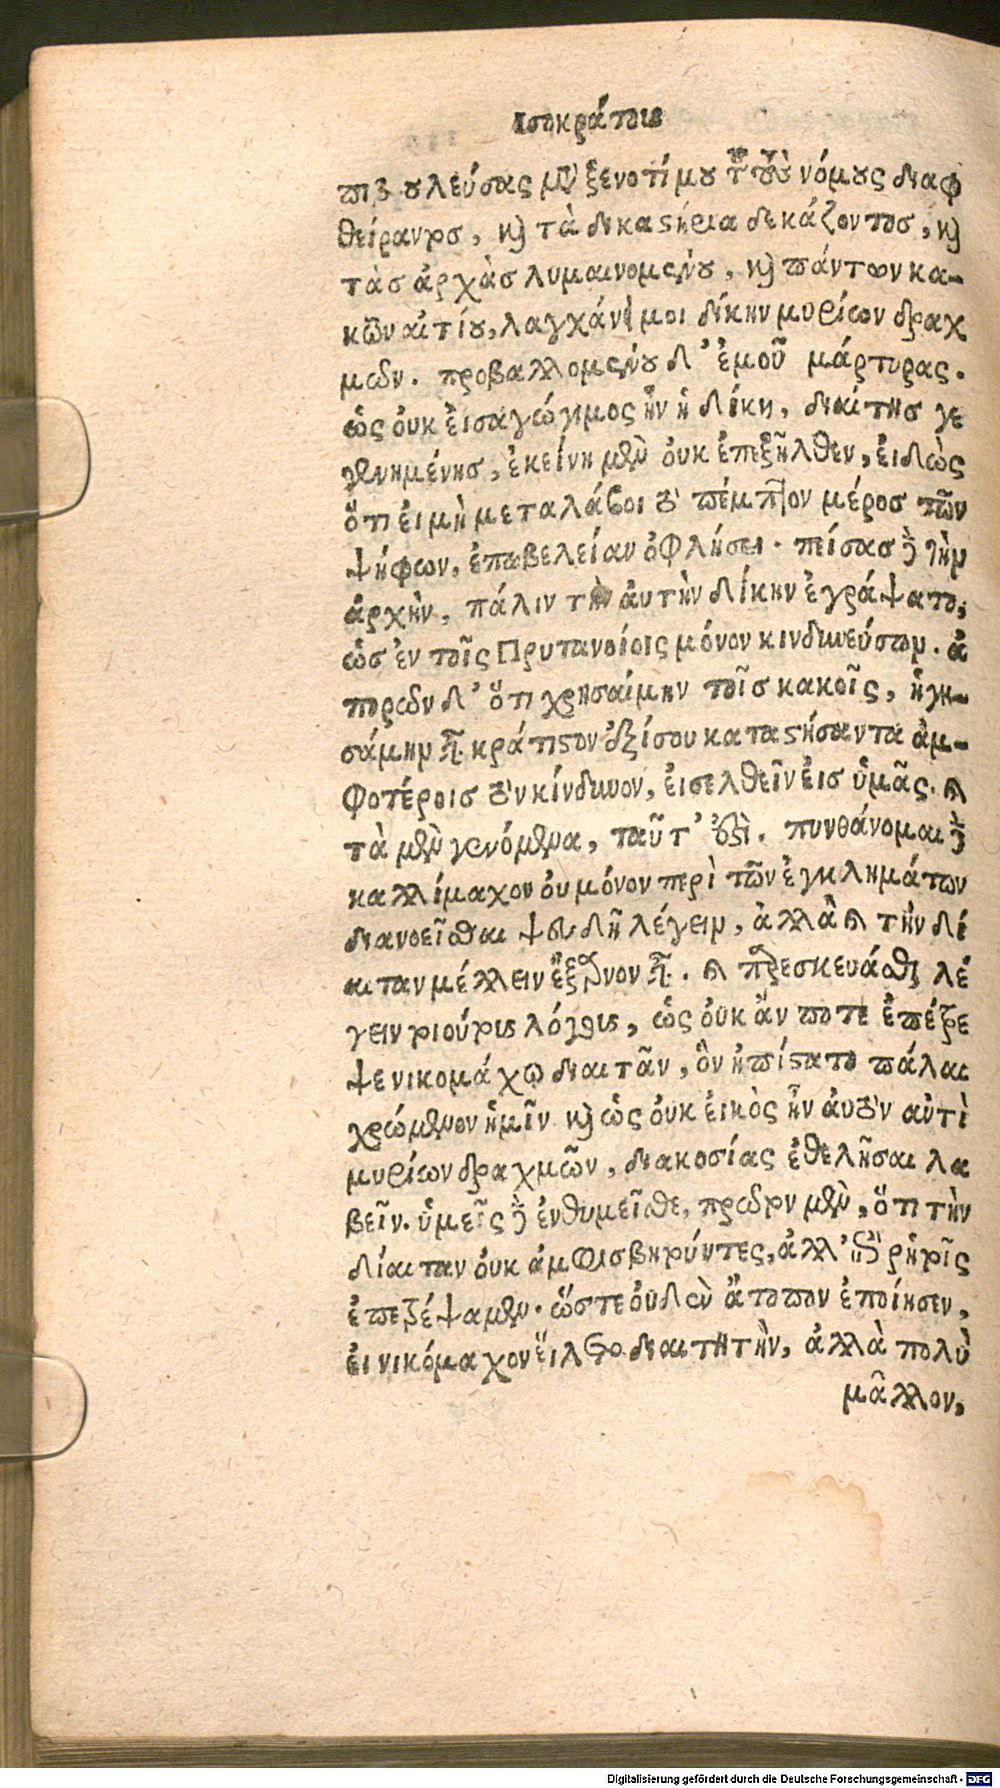 Ισοκράτους
πιβουλεύσας μετὰ ξενοτίμου τοῦ τοὺς νόμους διαφ
θείραντος, καὶ τὰ δικαστήρια δεκάζοντος, καὶ
τὰς ἀρχὰς λυμαινομένου, καὶ πάντων κα-
κῶν αἰτίου, λαγχάνει μοι δίκην μυρίων δραχ
μῶν. προβαλλομένου δ' ἐμοῦ μάρτυρας.
ὡς οὐκ εἰσαγώγιμος ἦν ἡ δίκη, διαίτης γε
γενημένης, ἐκείνῃ μὲν οὐκ ἐπεξῆλθεν, εἰδὼς
ὅτι εἰ μὴ μεταλάβοι τὸ πέμπτον μέρος τῶν
ψήφων, ἐπωβελείαν ὀφλήσει. πείσας δὲ τὴν
ἀρχὴν, πάλιν τὴν αὐτὴν δίκην ἐγράψατο,
ὡς ἐν τοῖς Πρυτανείοις μόνον κινδυνεύσων. ἀ
πορῶν δ' ὅτι χρησαίμην τοῖς κακοῖς, ἡγη-
σάμην εἶναι κράτιστον ἐξίσου καταστήσαντα ἀμ-
φοτέροις τὸν κίνδυνον, εἰσελθεῖν εἰς ὑμᾶς. καὶ
τὰ μὲν γενόμενα, ταῦτ' ἐστὶ. πυνθάνομαι δὲ
καλλίμαχον οὐ μόνον περὶ τῶν ἐγκλημάτων
διανοεῖσθαι ψευδῆ λέγειν, ἀλλὰ καὶ τὴν δί
αιταν μέλλειν ἔξαρνον εἶναι. καὶ παρεσκευάσθαι λέ
γειν τοιούτους λόγους, ὡς οὐκ ἄν ποτε ἐπέτρε
ψε νικομάχῳ διαιτᾶν, ὃν ἠπίστατο πάλαι
χρώμενον ἡμῖν καὶ ὡς οὐκ εἰκὸς ἦν αὐτὸν αὐτὶ
μυρίων δραχμῶν, διακοσίας ἐθελῆσαι λα
βεῖν. ὑμεῖς δὲ ἐνθυμεῖσθε, πρῶτον μὲν, ὅτι τὴν
δίαιταν οὐκ ἀμφισβητοῦντες, ἀλλ' ἐπὶ ῥητοῖς
ἐπετρέψαμεν. ὥστε οὐδὲν ἄτοπον ἐποίησεν,
εἰ νικόμαχον εἵλετο διαιτητὴν, ἀλλὰ πολὺ
μᾶλλον,
Digitalisierung gefördert durch die Deutsche Forschungsgemeinschaft - DFG